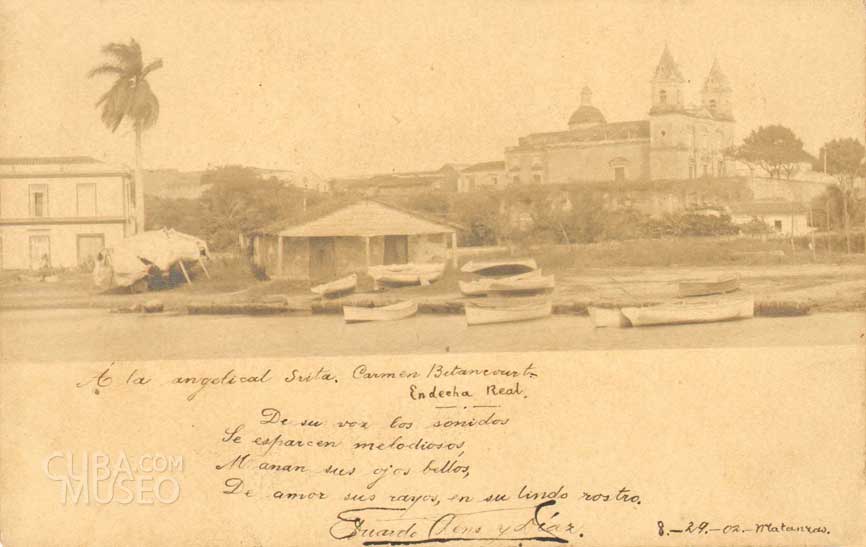 Á la angelical Srita. Carmen Betancourt.
Endecha Real.
De su voz los sonidos
Se esparcen melodiosos,
Manan sus ojos bellos,
De amor sus rayos, en su lindo rostro.
Eduardo y Díaz.
8.-29.-02.-Matanzas.
CUBA.COM
MUSEO